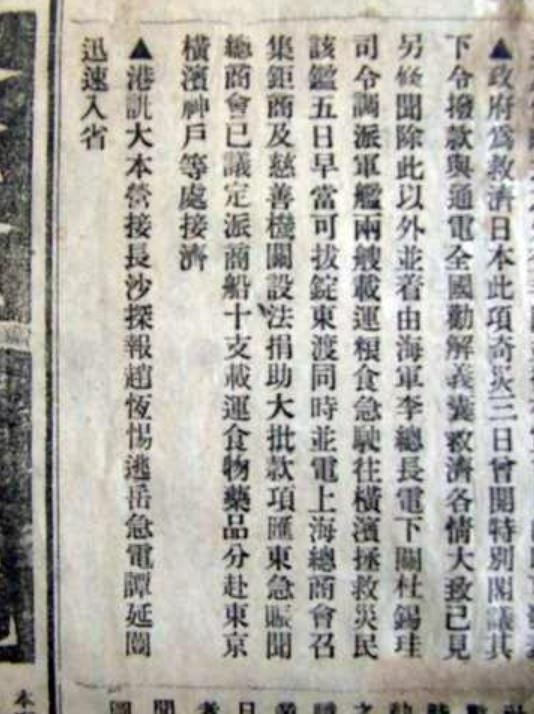 ▲政府為救濟日本此項奇災三日曾開特別閣議其
下令撥款與通電全國勸解義囊救濟各情大致已見
另條聞除此以外並着由海軍李總長電下關杜錫珪
司令調派軍艦兩艘載運粮食急駛往橫濱拯救災民
該艦五日早當可拔錠東渡同時並電上海總商會召
集鉅商及慈善機關設法捐助大批款項匯東急賑聞
總商會已議定派商船十支載運食物藥品分赴東京
橫濱神戶等處接濟
▲港訊大本營接長沙探報趙恆惕逃岳急電譚延闓
迅速入省